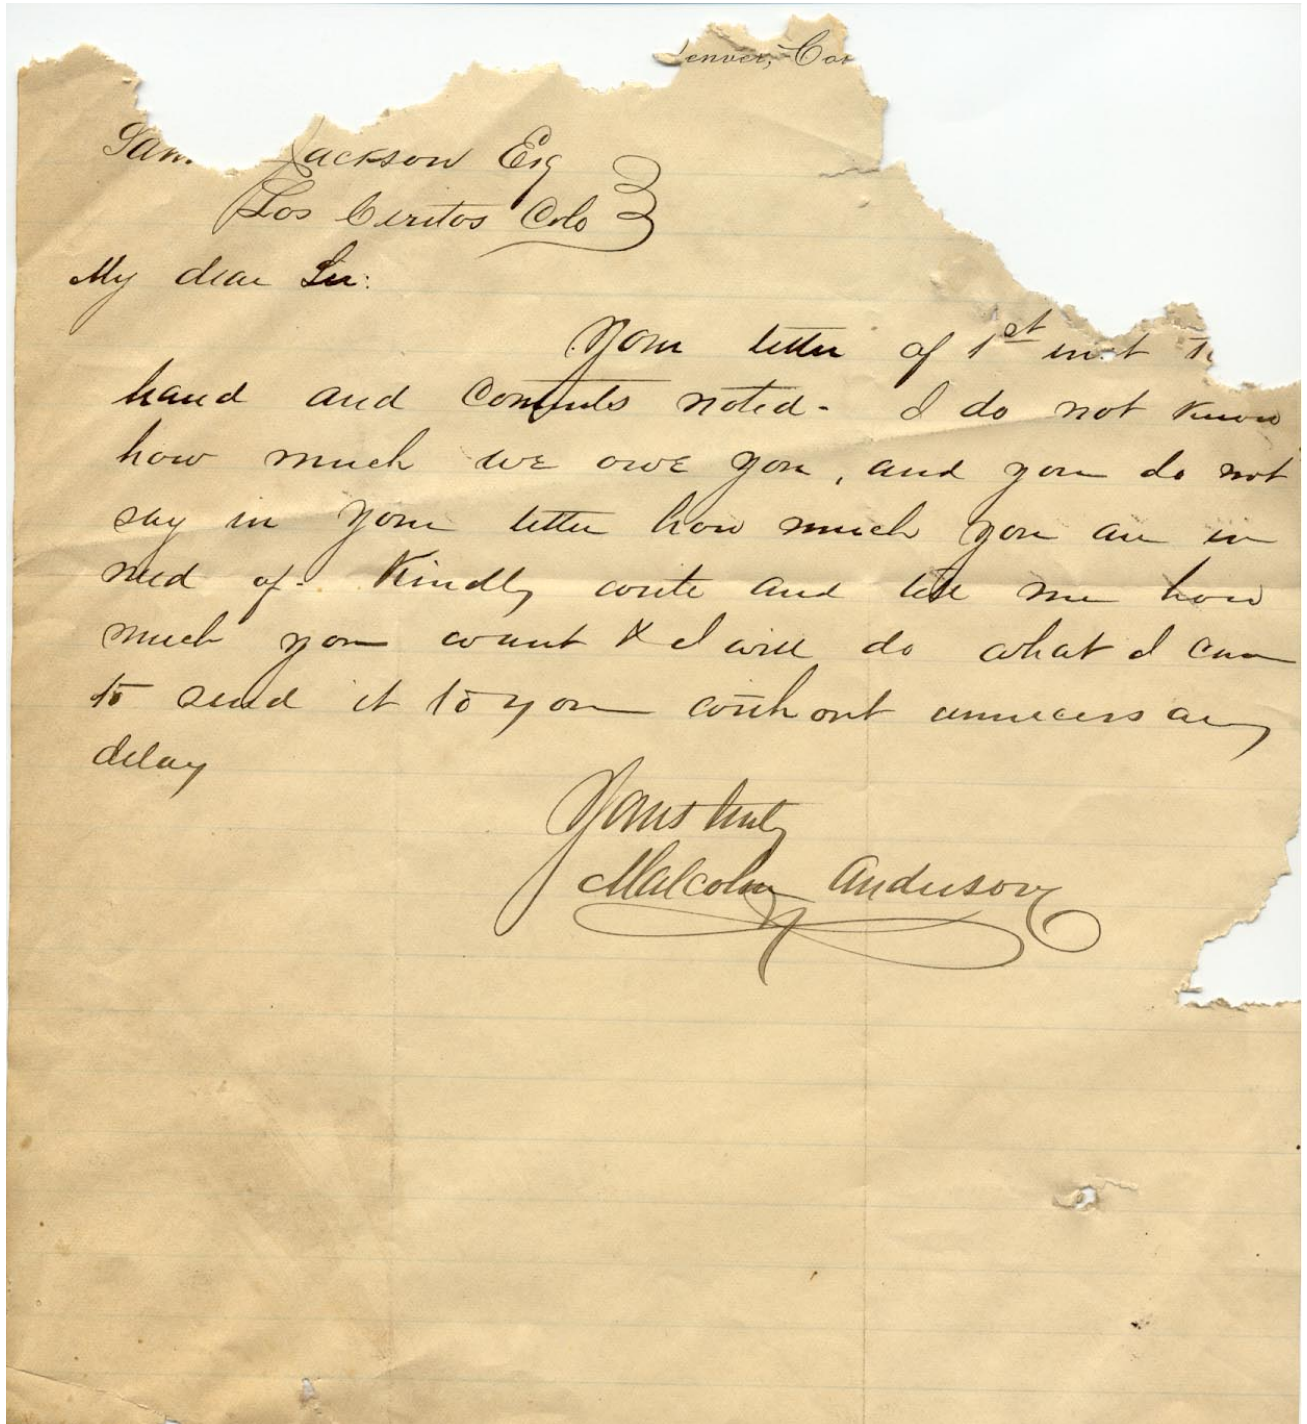 Denver, Co
Sam. Jackson Esq
Los Ceritos Colo
My dear Sir:
Your letter of 1st inst to
hand and contents noted - I do not know
how much we owe you, and you do not
say in your letter how much you are in
need of - Kindly write and tell me how
much you want & I will do what I can
to send it to you without unnecessary
delay
Yours truly
Malcolm Anderson